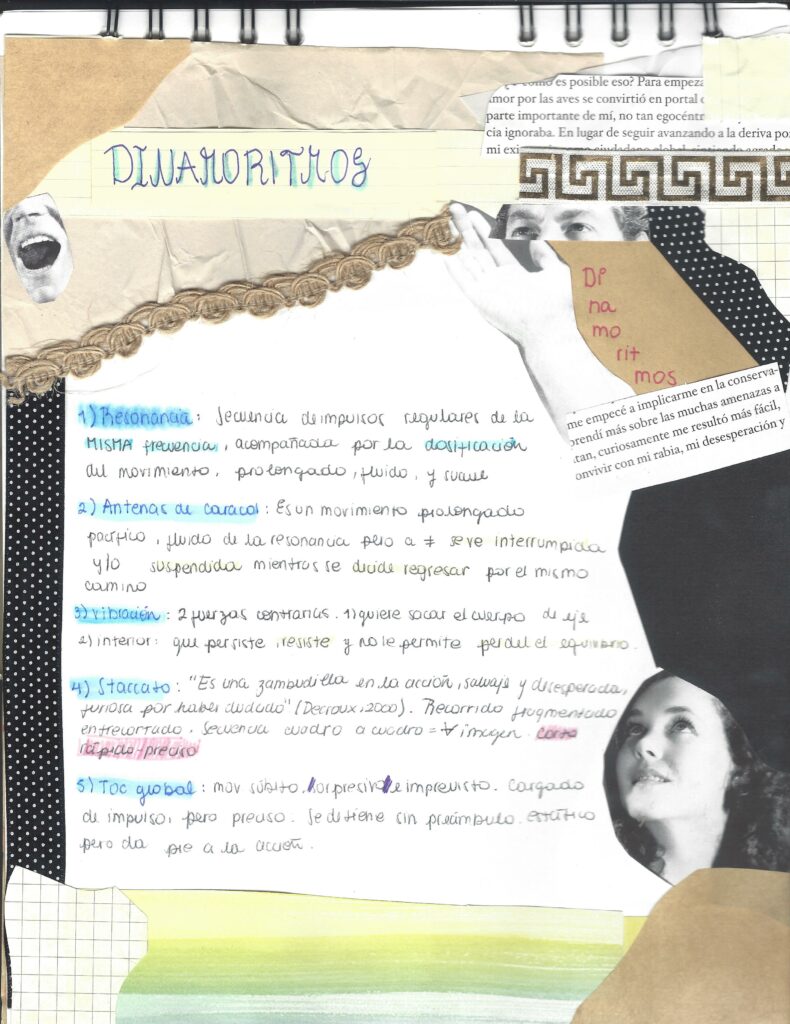 es posible eso? Para empeza
amor por las aves se convirtió en portal
parte importante de mí, no tan egocéntr
cía ignoraba. En lugar de seguir avanzando a la deriva po
DINAMORITMOS
Di
na
mo
rit
mos
me empecé a implicarme en la conserva-
prendí más sobre las muchas amenazas a
tan, curiosamente me resultó más fácil,
onvivir con mi rabia, mi desesperación y
1) Resonancia: Secuencia de impulsos regulares de la
MISMA frecuencia, acompañada por la dosificación
del movimiento, prolongado, fluido, y suave
2) Antenas de caracol: Es un movimiento prolongado
pacífico, fluido de la resonancia pero a ≠ se ve interrumpida
y/o suspendida mientras se decide regresar por el mismo
camino
3) vibración: 2 fuerzas contrarias. 1) quiere sacar el cuerpo de eje
2) interior: que persiste, resiste y no le permite perder el equilibrio.
4) Staccato: "Es una zambullida en la acción, salvaje y desesperada,
furiosa por haber dudado" (Decroux, 2000). Recorrido fragmentado
entrecortado. Secuencia cuadro a cuadro = ∀ imagen. corto
rápido-preciso
5) Toc global: mov súbito, sorpresivo e imprevisto. Cargado
de impulso, pero preciso. Se detiene sin preámbulo. estático
pero da pie a la acción.